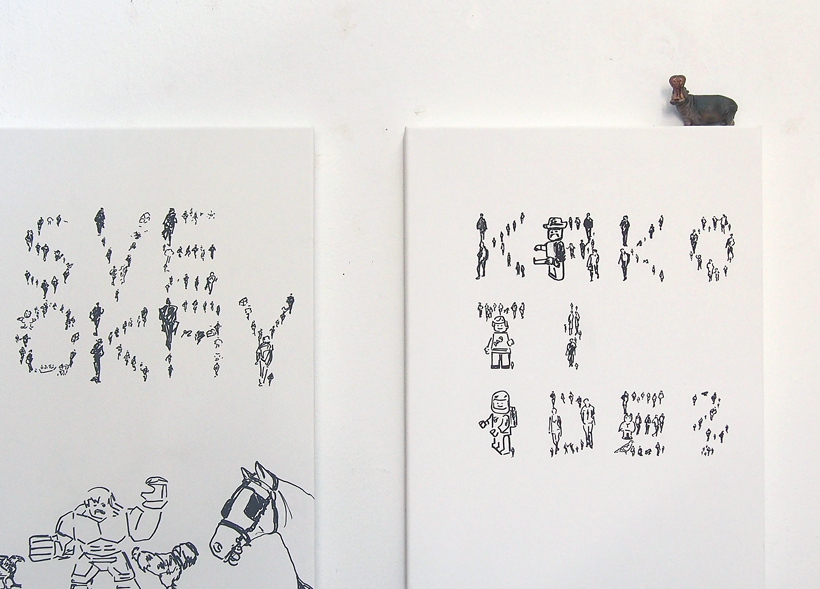 SVE
OKAY
KAKO
TI
IDE?